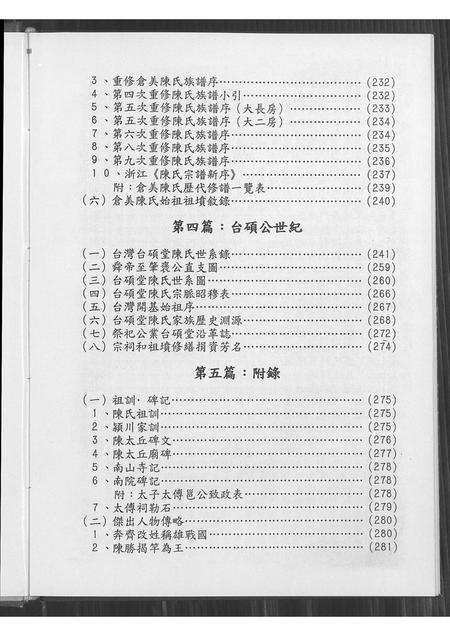 3、重修倉美陳氏族譜序……………………(232)
4、第四次重修陳氏族譜小引………………(232)
5、第五次重修陳氏族譜序(大長房)…………(233)
6、第五次重修陳氏族譜序(大二房)…………(234)
7、第六次重修陳氏族譜序…………………(234)
8、第八次重修陳氏族譜序…………………(235)
9、第九次重修陳氏族譜序…………………(236)
10、浙江《陳氏宗譜新序》…………………(237)
附:倉美陳氏歷代修譜一覽表………………(239)
(六)倉美陳氏始祖祖墳敘錄…………………(240)
第四篇:台碩公世紀
(一)台灣台碩堂陳氏世系錄…………………(241)
(二)舜帝至肇裘公直支圖……………………(259)
(三)台碩堂陳氏世系圖………………………(260)
(四)台碩堂陳氏宗脈昭穆表…………………(266)
(五)台灣開基始祖序…………………………(267)
(六)台碩堂陳氏家族歷史淵源………………(268)
(七)祭祀公業台碩堂沿革誌…………………(272)
(八)宗祠和祖墳修繕捐資芳名………………(274)
第五篇:附錄
(一)祖訓·碑記………………………………(275)
1、陳氏祖訓…………………………………(275)
2、潁川家訓…………………………………(275)
3、陳太丘碑文………………………………(276)
4、陳太丘廟碑………………………………(277)
5、南山寺記…………………………………(278)
6、南院碑記…………………………………(278)
附:太子太傅邕公致政表……………………(278)
7、太傅祠勒石………………………………(279)
(二)傑出人物傳略……………………………(280)
1、奔齊改姓稱雄戰國………………………(280)
2、陳勝揭竿為王……………………………(281)